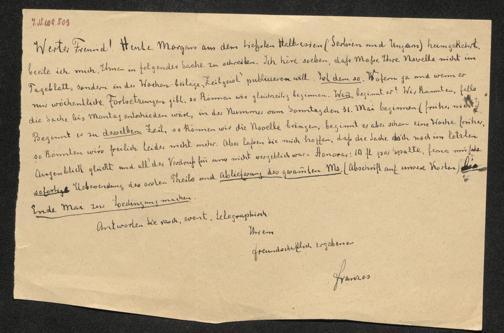 Werter Freund! Heute Morgens aus dem tiefsten Halbasien (Serbien und Ungarn) heimgekehrt,
beeile ich mich, Ihnen in folgender Sache zu schreiben. Ich höre soeben, daß Mosse Ihre Novelle nicht im
Tageblatt, sondern in der Wochen-Beilage „Zeitgeist“ publicieren will. Ist dem so? Wofern ja und wenn er
nur wöchentliche Fortsetzungen gibt, so können wir gleichzeitig beginnen. Wann beginnt er? Wir könnten, falls
die Sache bis Montag entschieden wäre, in der Nummer vom Sonntag den 31. Mai beginnen (früher nicht).
Beginnt er zu derselben Zeit, so können wir die Novelle bringen, beginnt er aber schon eine Woche früher,
so könnten wir's freilich leider nicht mehr. Aber lassen Sie mich hoffen, daß die Sache doch noch im letzten
Augenblick glückt und all' der Verdruß für uns nicht vergeblich war. Honorar: 10 fl per Spalte, ferner müßte
sofortige Uebersendung des ersten Theils und Ablieferung des gesamten Ms. (Abschrift auf unsere Kosten) bis
Ende Mai zur Bedingung machen.
Antworten Sie rasch, event. telegraphisch
Ihrem
freundschaftlich ergebenen
Franzos